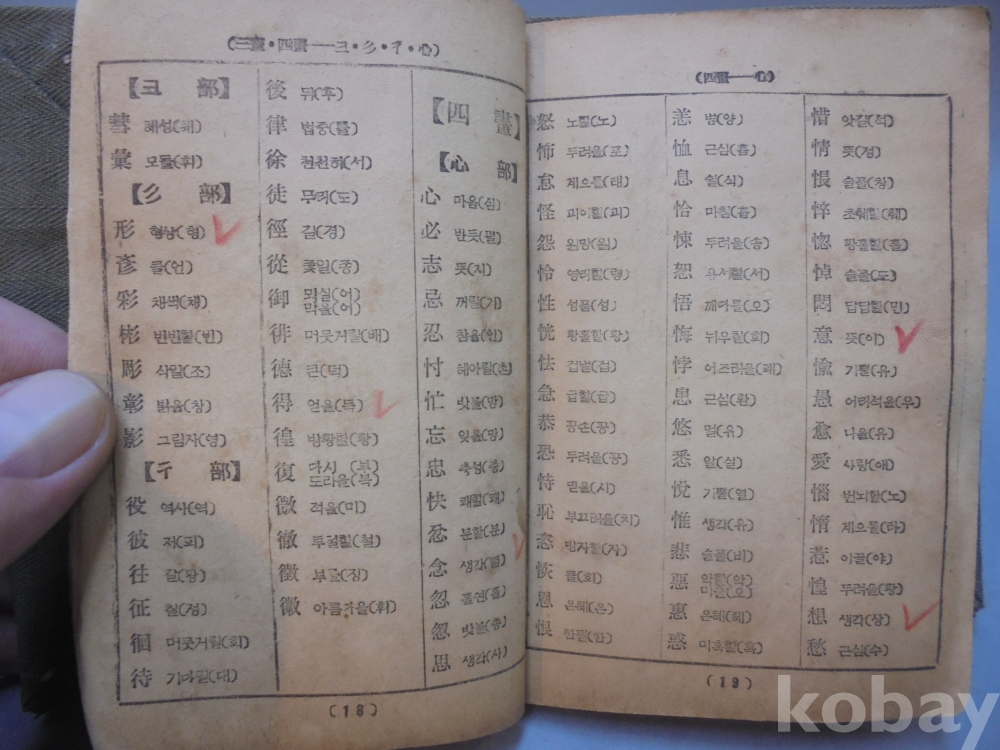 (三畫·四畫──彐·彡·彳·心)
【彐 部】
彗 혜성(혜)
彙 모들(휘)
【彡 部】
形 형상(형)
彦 클(언)
彩 채색(채)
彬 빈빈할(빈)
彫 삭일(조)
彰 밝을(창)
影 그림자(영)
【彳 部】
役 역사(역)
彼 저(피)
往 갈(왕)
征
徊 머뭇거릴(회)
待 기다릴(대)
後 뒤(후)
律 법중(률)
徐 천천히(서)
徒 무리(도)
徑 길(경)
從 좇일(종)
御 뫼실(어)
막을(어)
徘 머뭇거릴(배)
德 큰(덕)
得 얻을(득)
徨 방황할(황)
復 다시 (부)
도라올(복)
微 적을(미)
徹 투철할(철)
徵 부를(징)
徽 아름다울(휘)
【四 畫】
【心 部】
心 마음(심)
必 반듯(필)
志 뜻(지)
忌 꺼릴(기)
忍 참을(인)
忖 헤아릴(촌)
忙 밧블(망)
忘 잊을(망)
忠 충성(충)
快 쾌할(쾌)
忿 분할(분)
念 생각(념)
忽 홀연(홀)
怱 밧블(총)
思 생각(사)
(18)
(四畫──心)
怒 노할(노)
怖 두려울(포)
怠 게으를(태)
怪 괴이할(괴)
怨 원망(원)
怜 영리할(령)
性 성품(성)
恍 황홀할(황)
怯 겁벌(겁)
急 급할(급)
恭 공손(공)
恐 두려울(공)
恃 믿을(시)
恥 부끄러울(치)
恣 방자할(자)
恢 클(회)
恩 은혜(은)
恨 한할(한)
恙 병(양)
恤 근심(휼)
息 쉴(식)
恰 마침(흡)
悚 두려울(송)
恕 용서할(서)
悟 깨다를(오)
悔 뉘우칠(회)
悖 어즈러울(패)
患 근심(환)
悠 멀(유)
悉 알(실)
悅 기쁠(열)
惟 생각(유)
悲 슬플(비)
惡 악할(악)
미울(오)
惠 은혜(혜)
惑 미혹할(혹)
惜 앗길(석)
情 뜻(정)
悵 슬플(창)
悴 초췌할(췌)
惚 황홀할(홀)
悼 슬플(도)
悶 답답할(민)
意 뜻(의)
愉 기쁠(유)
愚 어리석을(우)
愈 나을(유)
愛 사랑(애)
惱 번뇌할(노)
惰 게으를(타)
惹 이끌(야)
惶 두려울(황)
想 생각(상)
愁 근심(수)
(19)
kobay